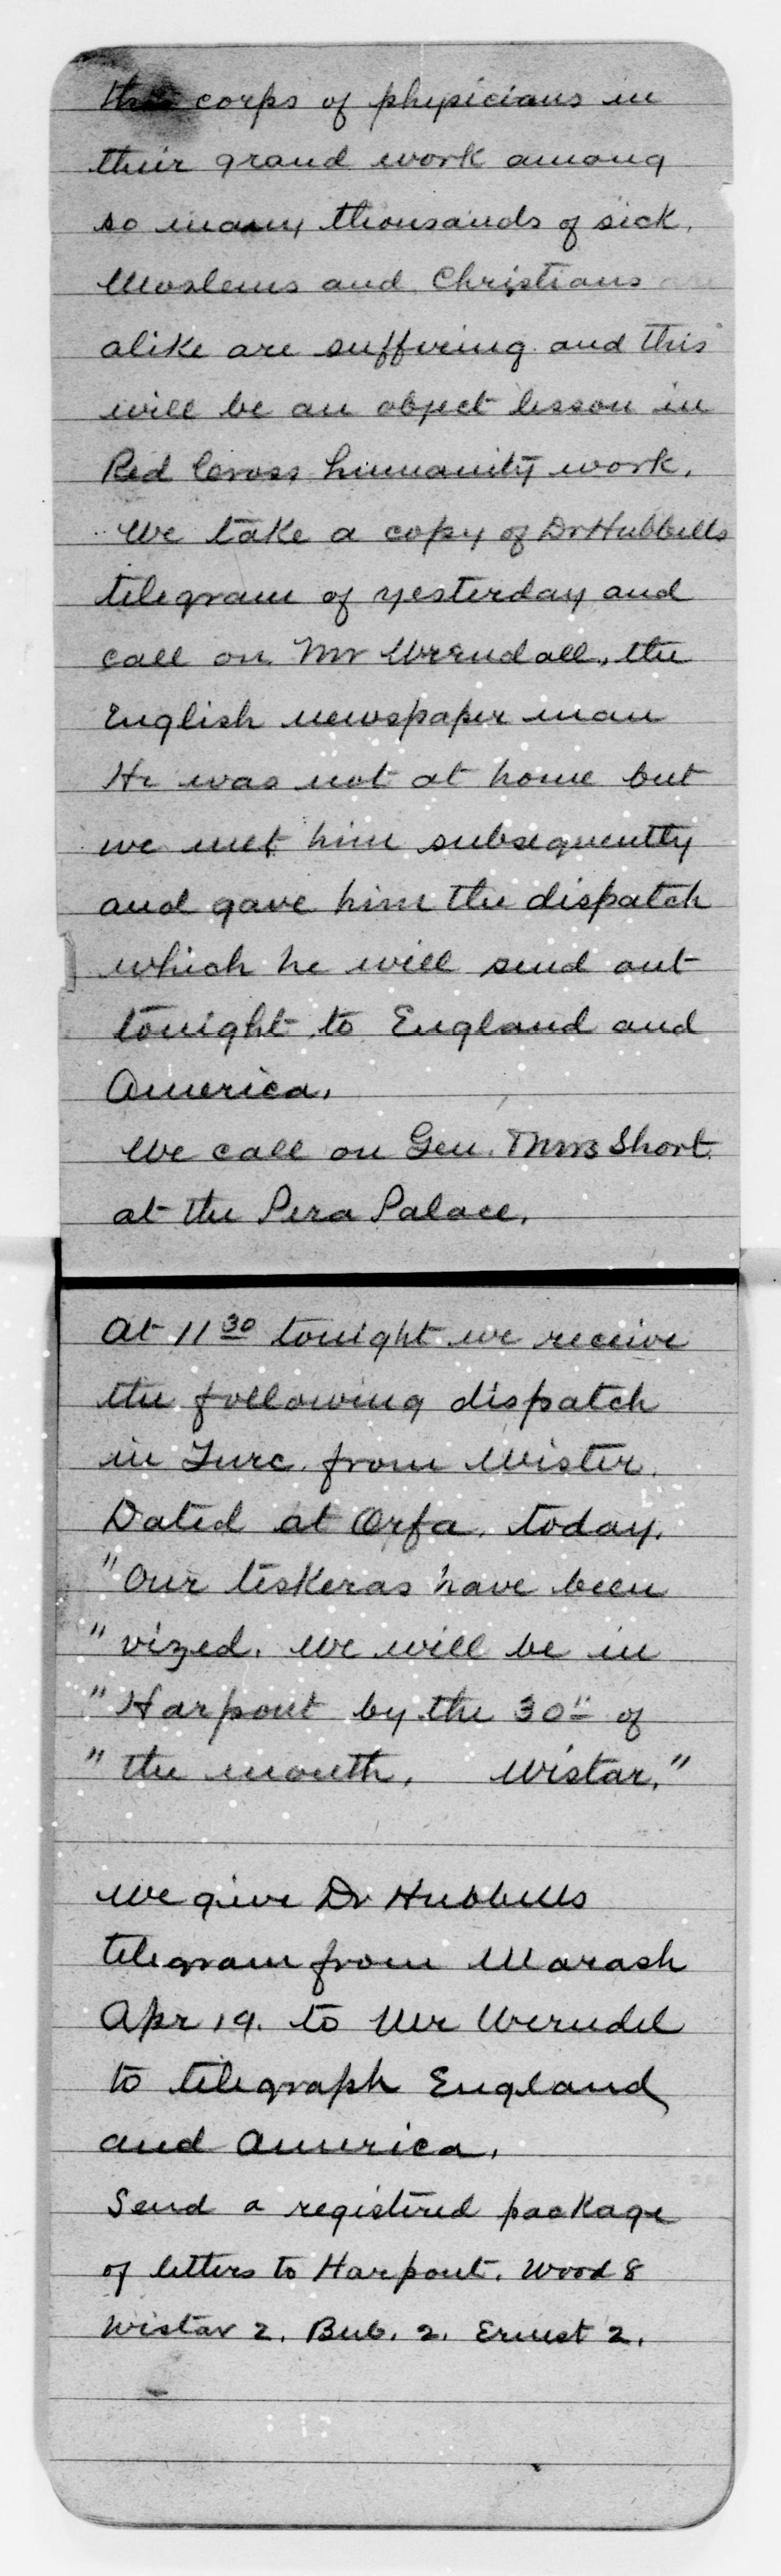 corps of physicians in
their grand work among
so many thousands of sick.
Moslems and Christians
alike are suffering and this
will be an object lesson in
Red Cross humanity work.
We take a copy of Dr Hubbells
telegram of yesterday and
call on Mr Wrendall, the
English newspaper man
He was not at home but
we met him subsequently
and gave him the dispatch
which he will send out
tonight to England and
America.
We call on Gen. Mrs Short
at the Pera Palace.
At 11 30 tonight we receive
the following dispatch
in Turc. from Wister.
Dated at Orfa. today.
"Our teskeras have been
"vized. We will be in
"Harpout by the 30" of
"the month. Wistar."
We give Dr Hubbells
telegram from Marash
Apr 19. to Mr Werndel
to telegraph England
and America.
Send a registered package
of letters to Harpout. Wood 8
Wistar 2. Bub. 2. Ernest 2.